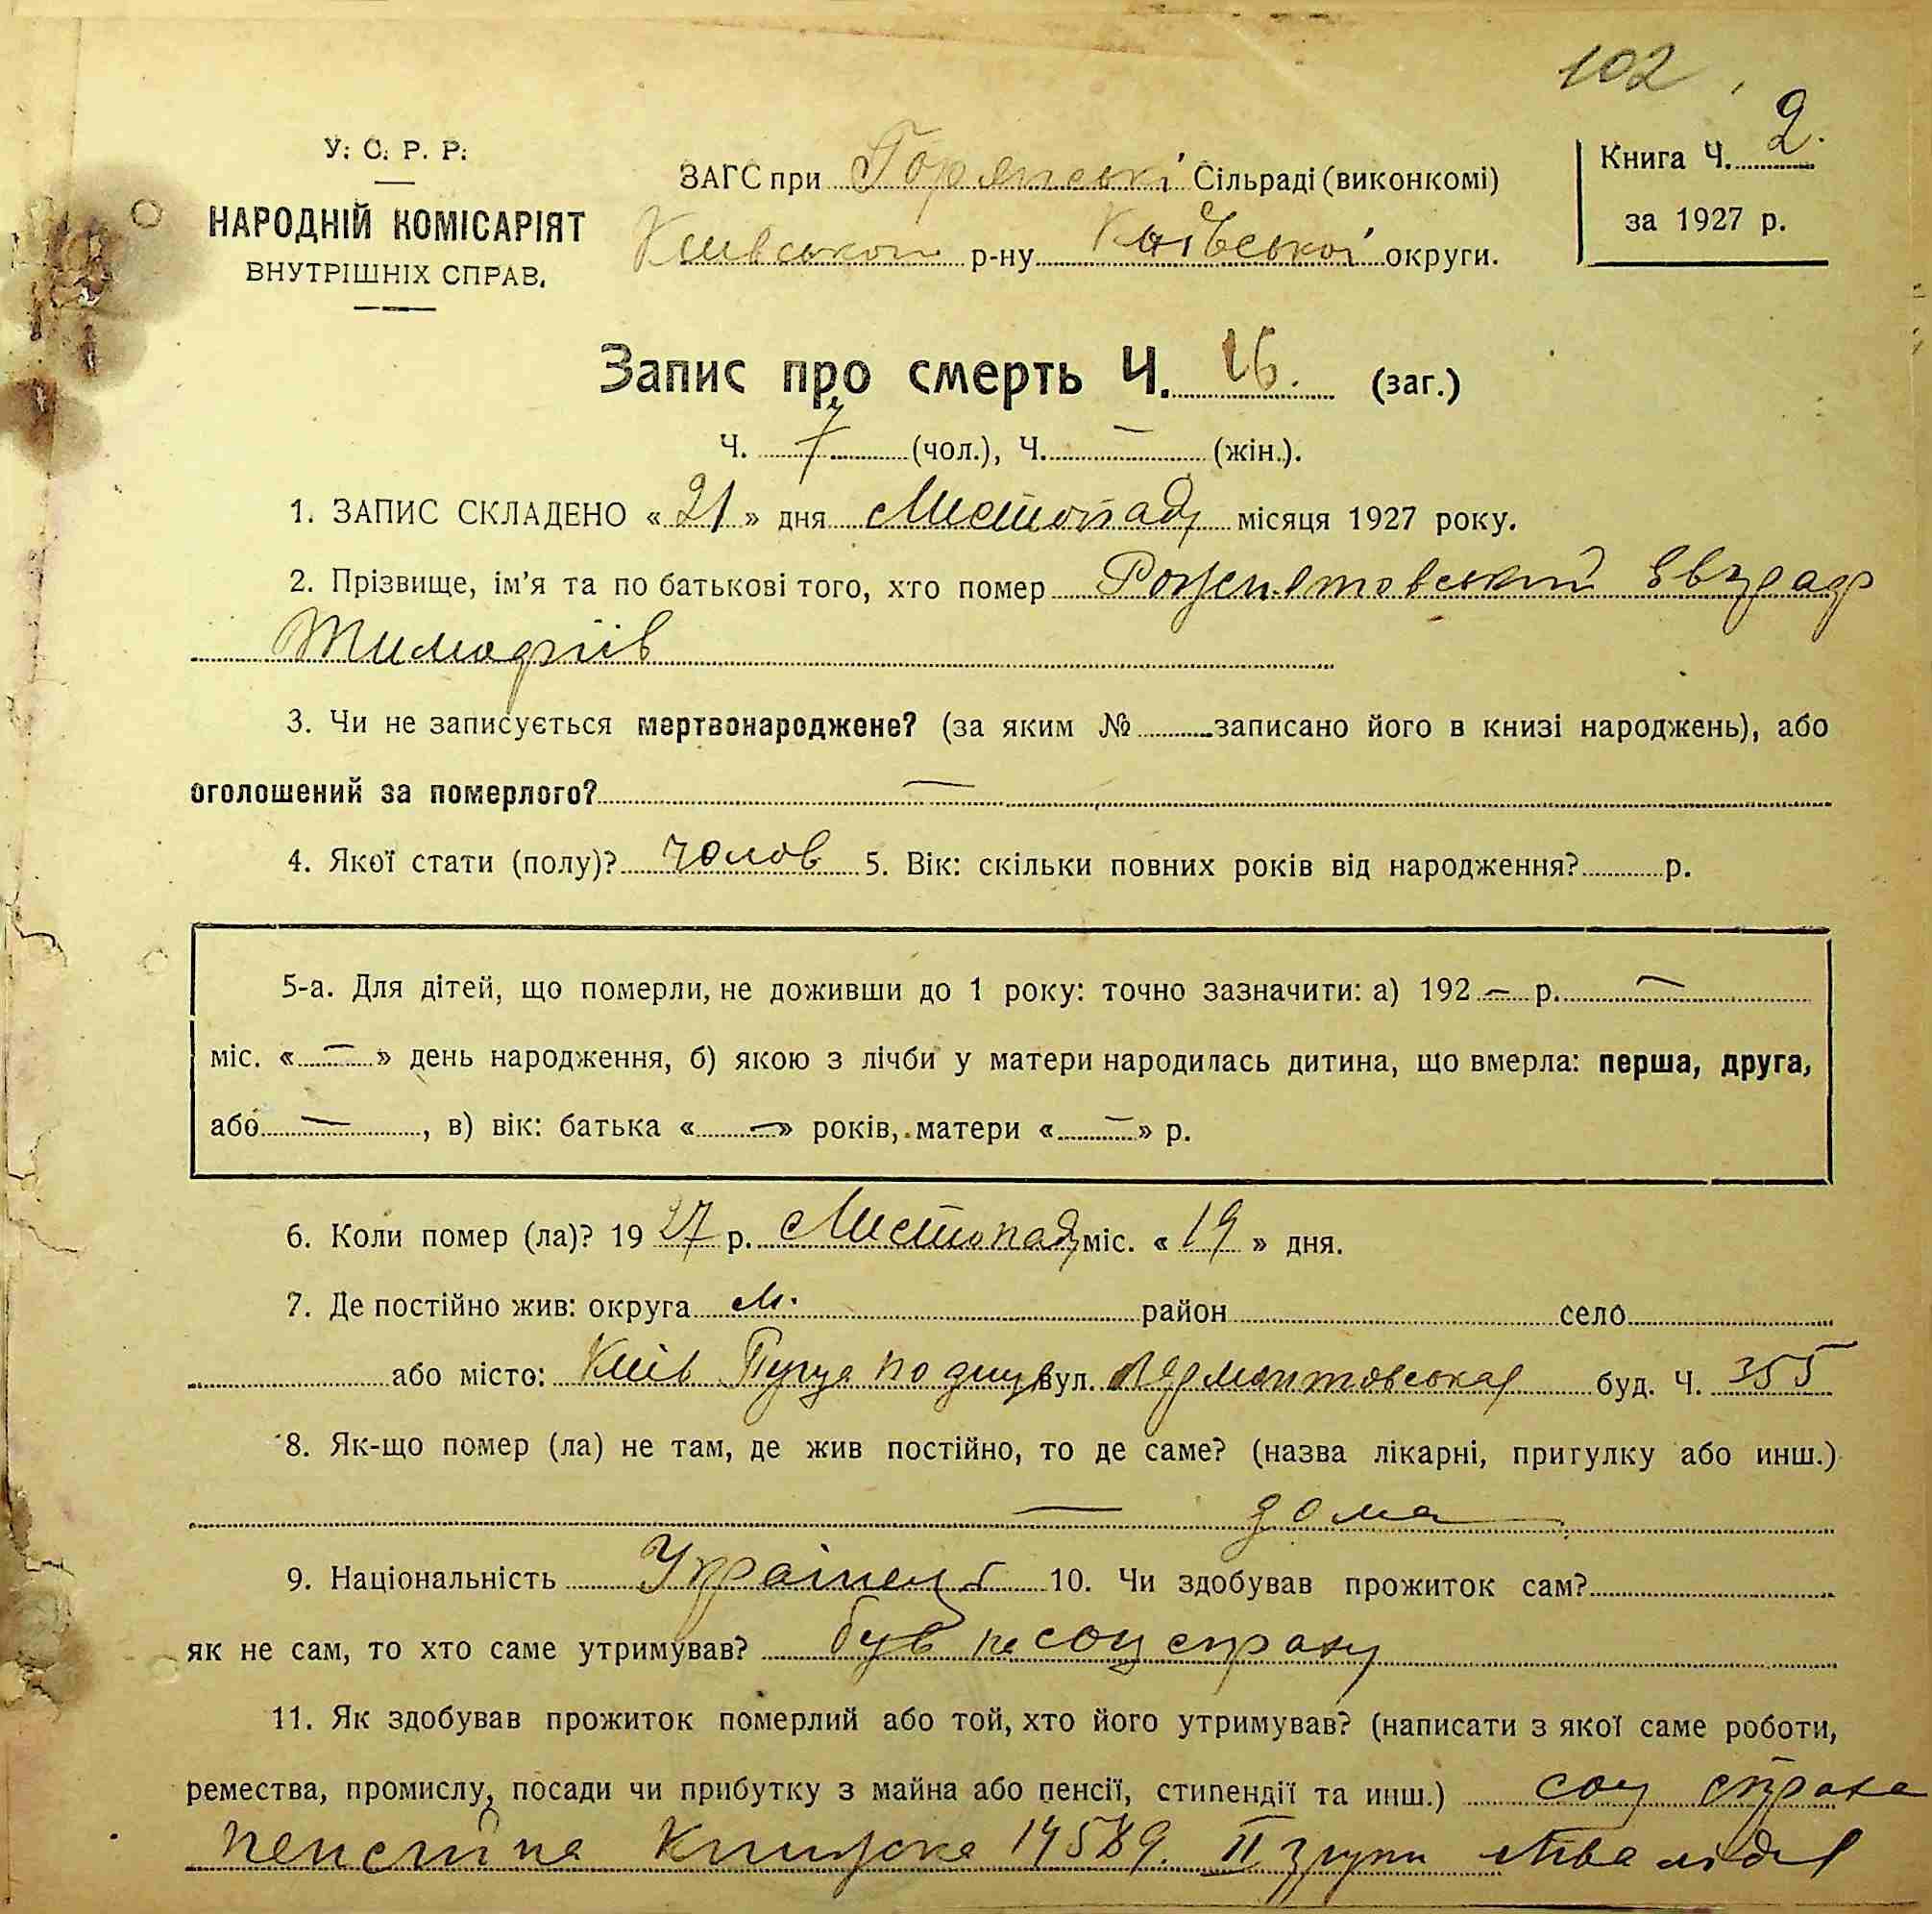 102
У. С. Р. Р.
НАРОДНІЙ КОМІСАРІЯТ
ВНУТРІШНІХ СПРАВ.
ЗАГС при Горянські Сільраді (виконкомі)
Київської р-ну Київської округи.
Книга Ч. 2.
за 1927 р.
Запис про смерть Ч. 16. (заг.)
Ч. 7 (чол.), Ч. — (жін.).
1. ЗАПИС СКЛАДЕНО « 21 » дня Листопаду місяця 1927 року.
2. Прізвище, ім’я та по батькові того, хто помер
3. Чи не записується мертвонароджене? (за яким № записано його в книзі народжень), або
оголошений за померлого? —
4. Якої стати (полу)? чолов 5. Вік: скільки повних років від народження? р.
5-а. Для дітей, що померли, не доживши до 1 року: точно зазначити: а) 192 — р. —
міс. « — » день народження, б) якою з лічби у матери народилась дитина, що вмерла: перша, друга,
або — , в) вік: батька « — » років, матери « — » р.
6. Коли помер (ла)? 19 27 р. Листопаду міс. « 19 » дня.
7. Де постійно жив: округа м. район село
або місто: Київ Пуща вул. Лярмонтовська буд. Ч. 355
8. Як-що помер (ла) не там, де жив постійно, то де саме? (назва лікарні, притулку або инш.)
— дома
9. Національність Українець 10. Чи здобував прожиток сам?
як не сам, то хто саме утримував? був на соц страху
11. Як здобував прожиток померлий або той, хто його утримував? (написати з якої саме роботи,
ремества, промислу, посади чи прибутку з майна або пенсії, стипендії та инш.) соц страха
II групи